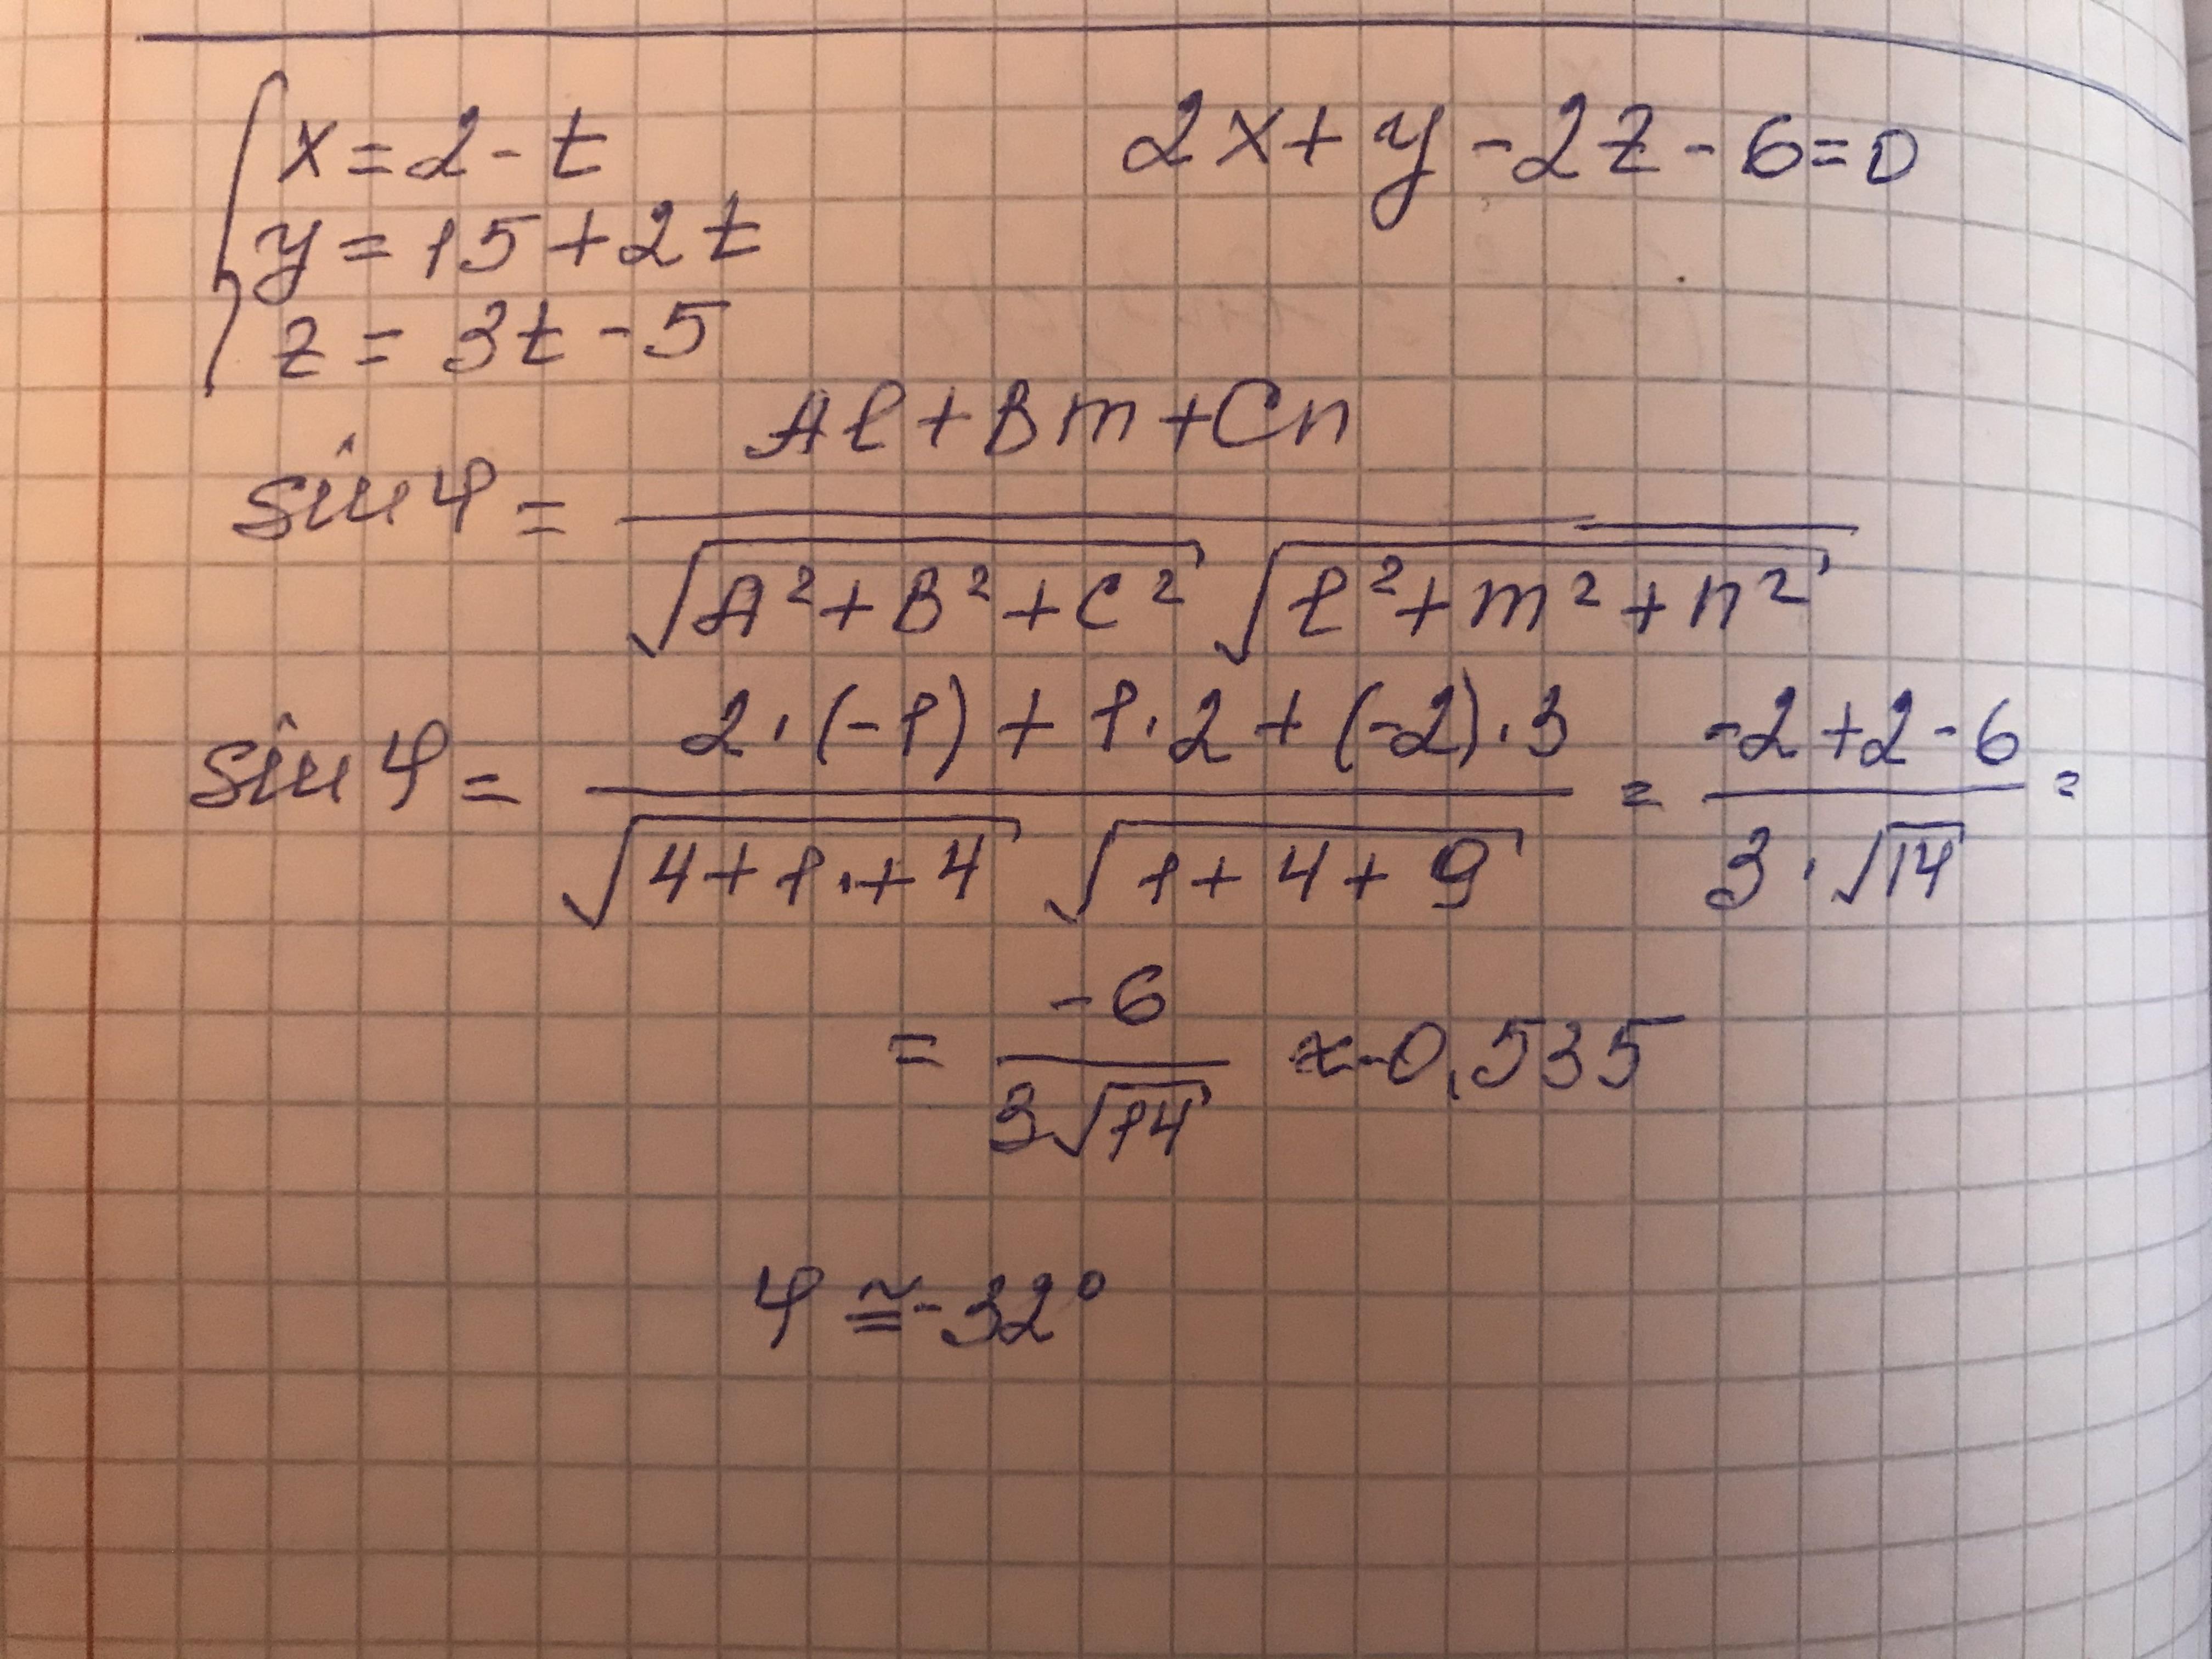 x = 2 - t
2x + y - 2z - 6 = 0
y = 15 + 2t
z = 3t - 5
sin φ = (Al + Bm + Cn) / (√(A² + B² + C²) √(l² + m² + n²))
sin φ = (2 · (-1) + 1 · 2 + (-2) · 3) / (√(4 + 1 + 4) √(1 + 4 + 9)) = (-2 + 2 - 6) / (3 · √14) =
= -6 / (3√14) ≈ -0,535
φ ≅ -32°